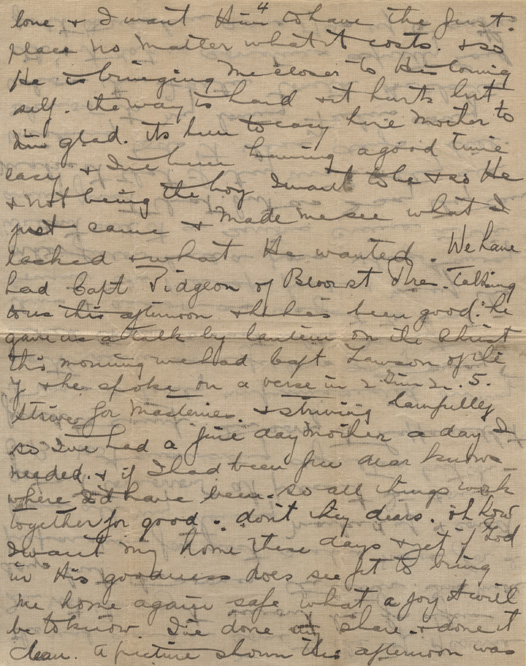 4
love & I want Him to have the first
place no matter what it costs. & so
He is bringing me closer to His loving
self. the way is hard & it hurts but
I'm glad. its been to easy here Mother to
easy & I've been having a good time
& not being the boy I want to be & so He
just came & made me see what I
lacked & what He wanted. We have
had Capt Pidgeon of Bloor st Pres. talking
to us this afternoon & he's been good. he
gave us a talk by lantern on the Christ
this morning we had Capt. Lawson of the
Y & he spoke on a verse in 2 Tim 2. 5.
Strives for Masteries. & striving lawfully
so I've had a fine day Mother a day I
needed. & if I had been free dear knows
where I'd have been. so all things work
together for good. don't they dears. oh how
I want my home these days & yet if God
in His goodness does see fit to bring
me home again safe what a joy it will
be to know I've done my share & done it
clean. A picture shown this afternoon was